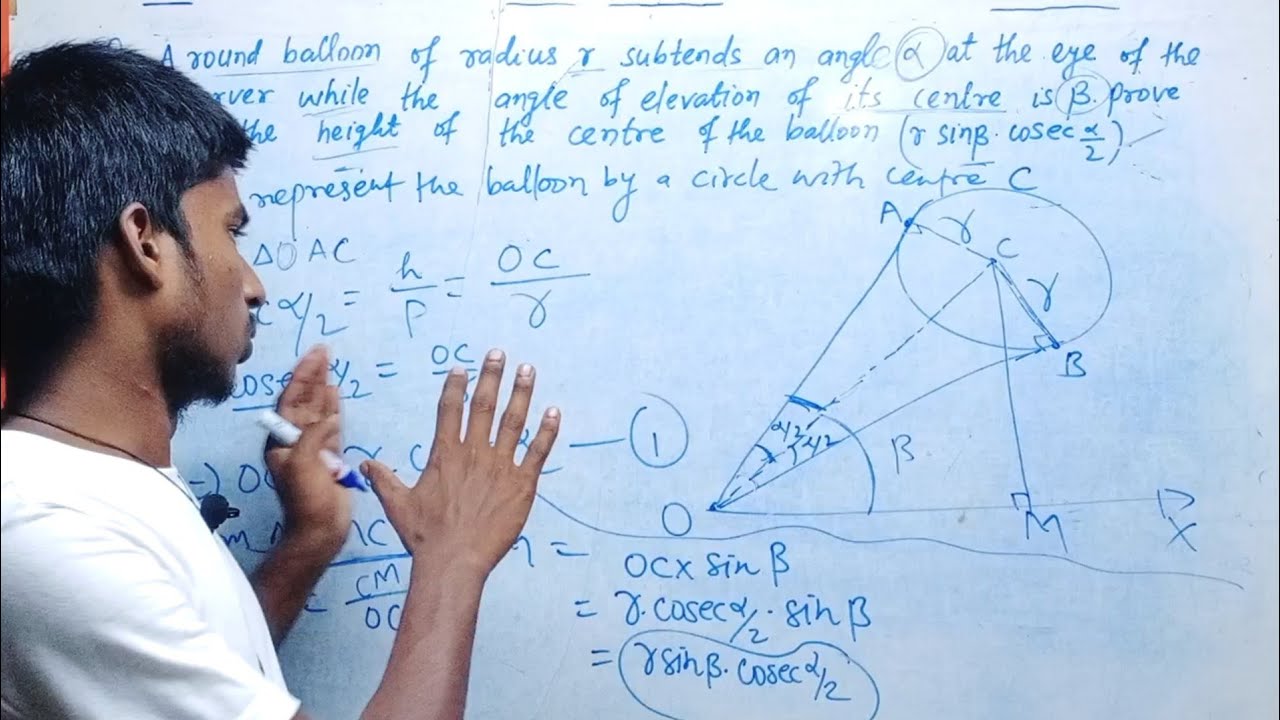 A round balloon of radius r subtends an angle α at the eye of the
while the angle of elevation of its centre is β. prove
the height of the centre of the balloon (r sinβ. cosec α/2)
represent the balloon by a circle with centre C
Δ OAC
α/2 = h/P = OC/r
cosec α/2 = OC
OC — ①
CM/OC
= OC x sin β
= r. cosec α/2 . sin β
= r sin β. cosec α/2
A
r
C
r
B
α/2
α/2
β
O
M
X